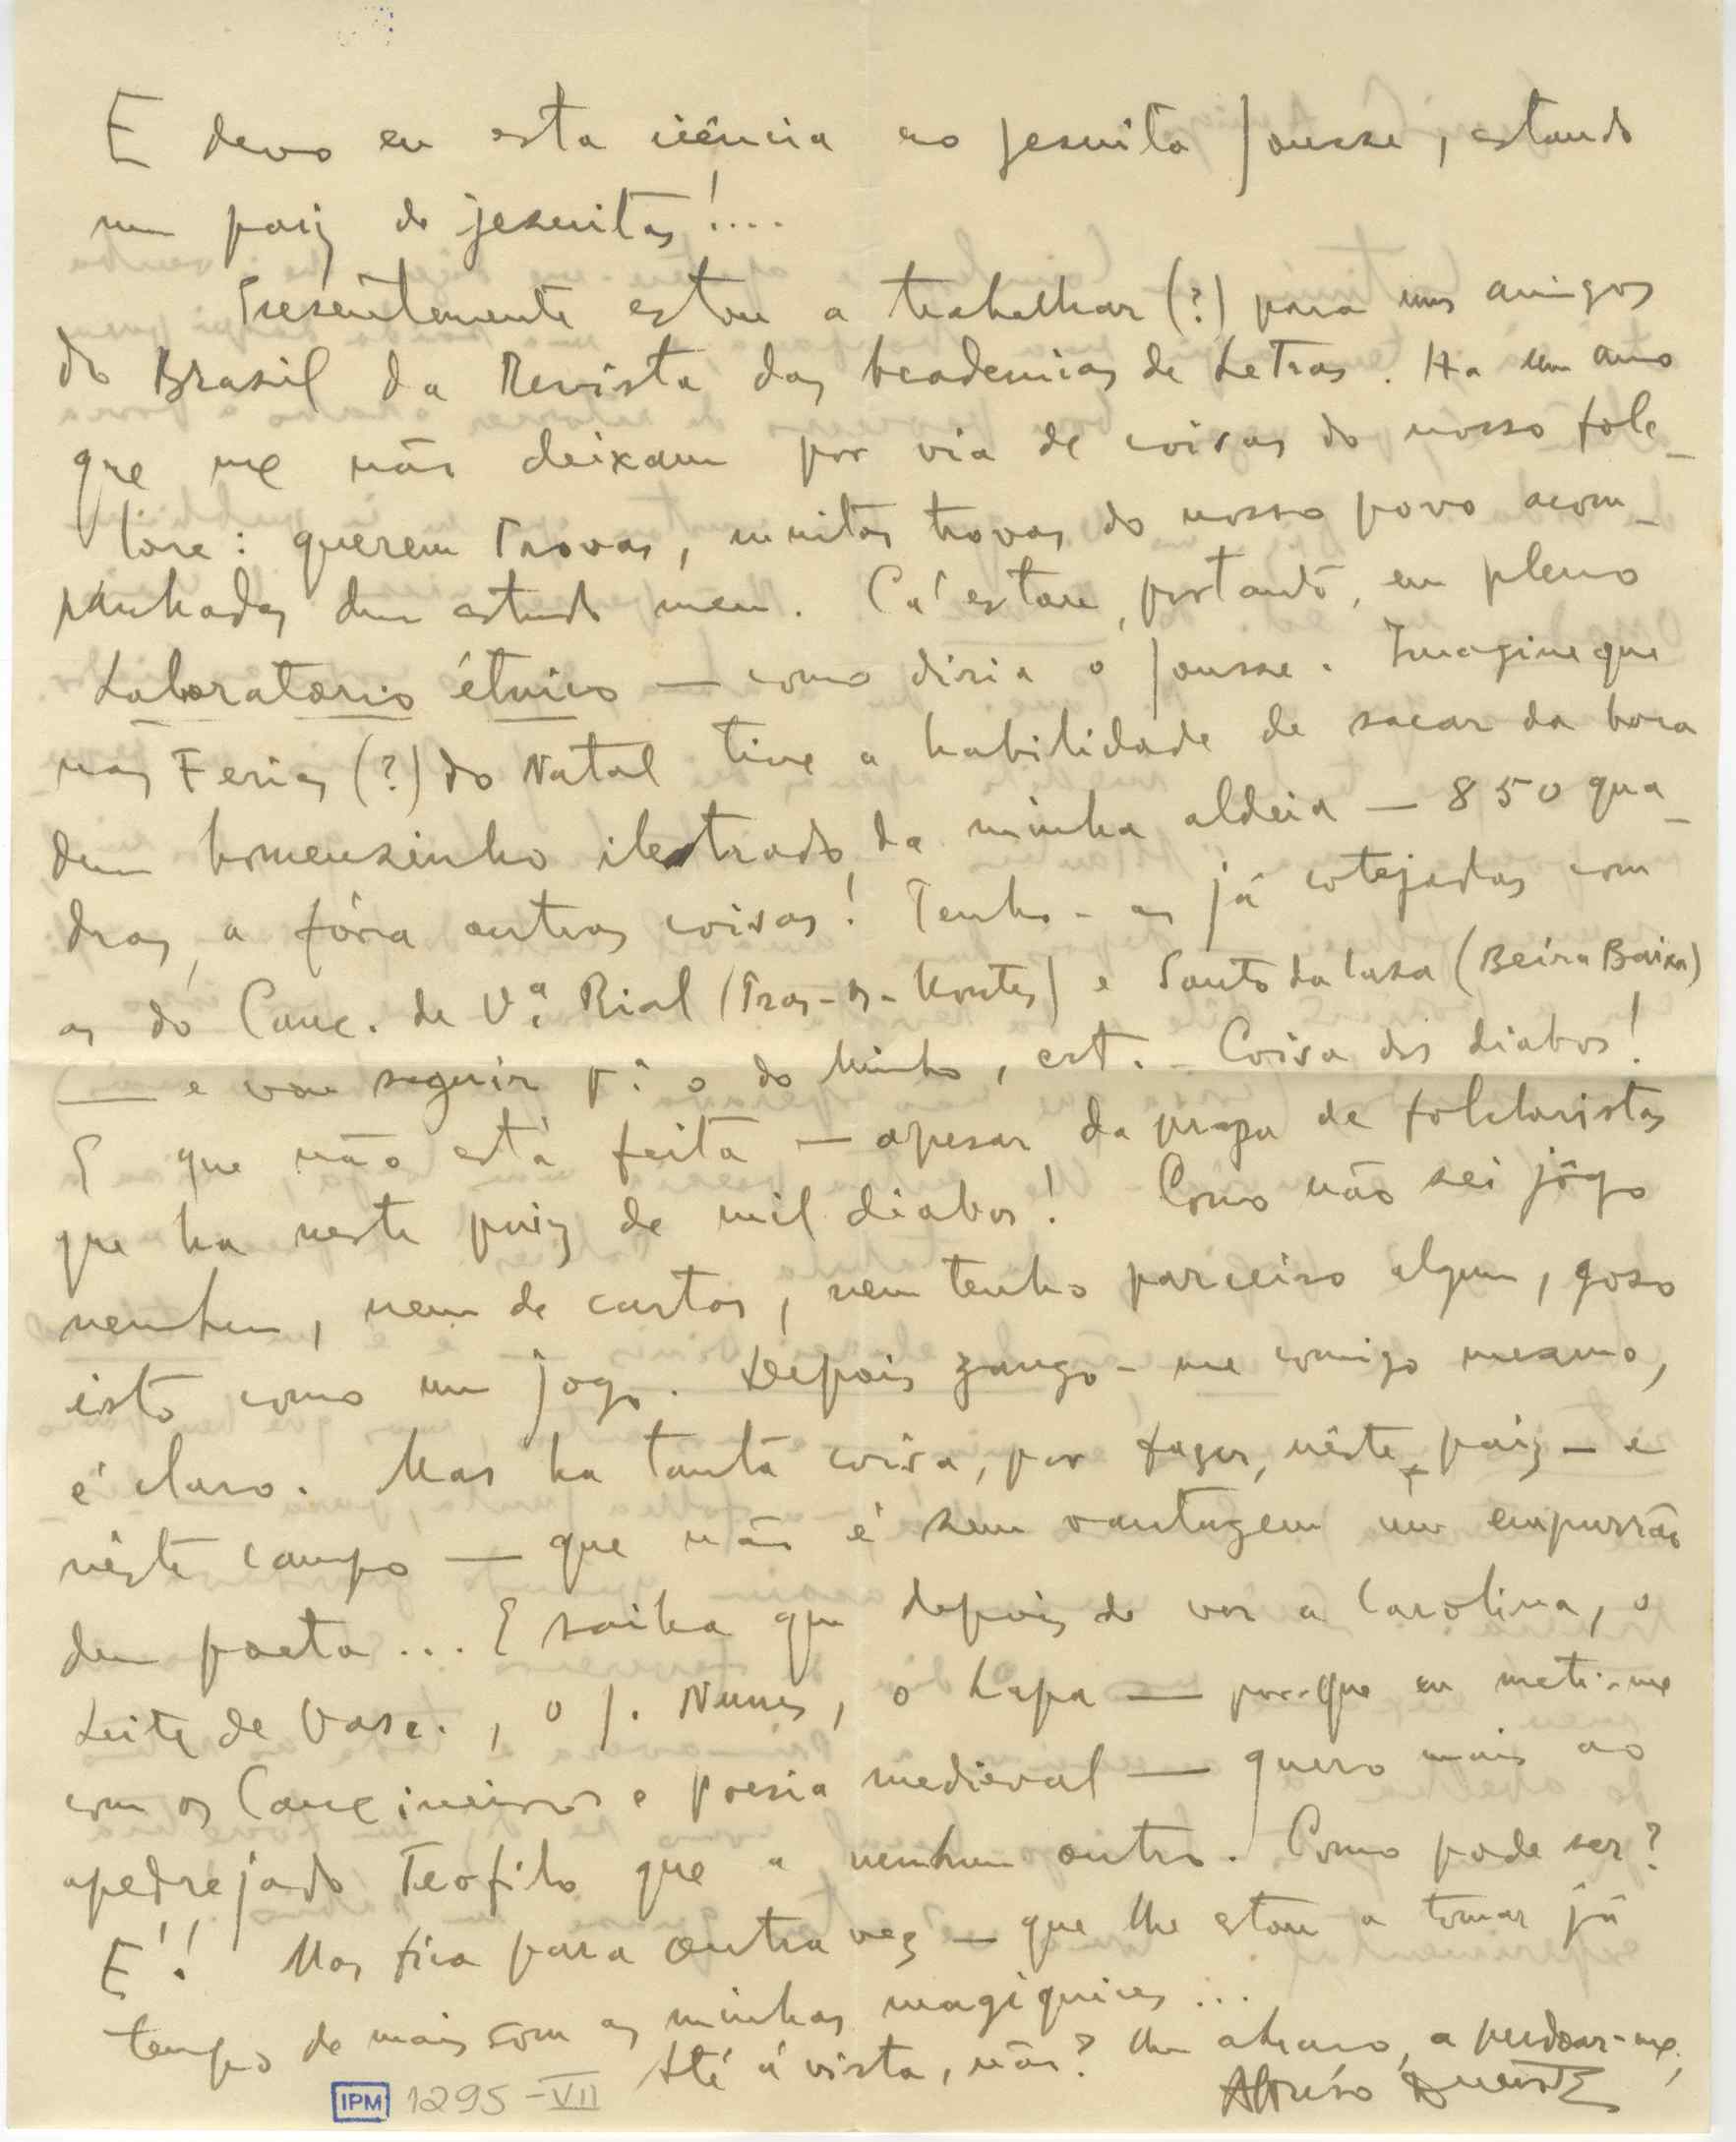 E devo eu esta ciência ao jesuita Jousse, estando
num paiz de jesuitas!....
Presentemente estou a trabalhar (?) para uns amigos
do Brasil da Revista das Academias de Letras. Ha um ano
que me não deixam por via de coisas do nosso fole-
lore: querem trovas, muitas trovas do nosso povo acom-
panhadas dum estudo meu. Cá estou, portanto, em pleno
Laboratorio étnico — como diria o Jousse. Imagine que
nas Ferias (?) do Natal tive a habilidade de sacar da boca
dum homensinho iletrado, da minha aldeia — 850 qua-
dras, a fóra outras coisas! Tenho-as já cotejadas com
as do Canc. de Vª Rial (Tras-os-Montes) e Santos da Casa (Beira Baixa)
— e vou seguir pª o do Minho, ect. — Coisa dos diabos!
E que não está feita — apesar da praga de folcloristas
que ha neste paiz de mil diabos! Como não sei jôgo
nenhum, nem de cartas, nem tenho parceiro algum, goso
isto como um jogo. Depois zango-me comigo mesmo,
é claro. Mas ha tanta coisa, por fazer, nêste paiz — e
nêste campo — que não é sem vantagem um empurrão
dum poeta... E saiba que depois de ver a Carolina, o
Leite de Vasc., o J. Nunes, o Lapa — por-que eu meti-me
com os Cancioneiros e poesia medieval — quero mais ao
apedrejado Teofilo que a nenhum outro. Como pode ser?
E'! Mas fica para outra vez — que lhe estou a tomar já
tempo de mais com as minhas
Até á vista, não? Um abraço, a perdoar-me,
Afonso Duarte
IPM 1295-VII